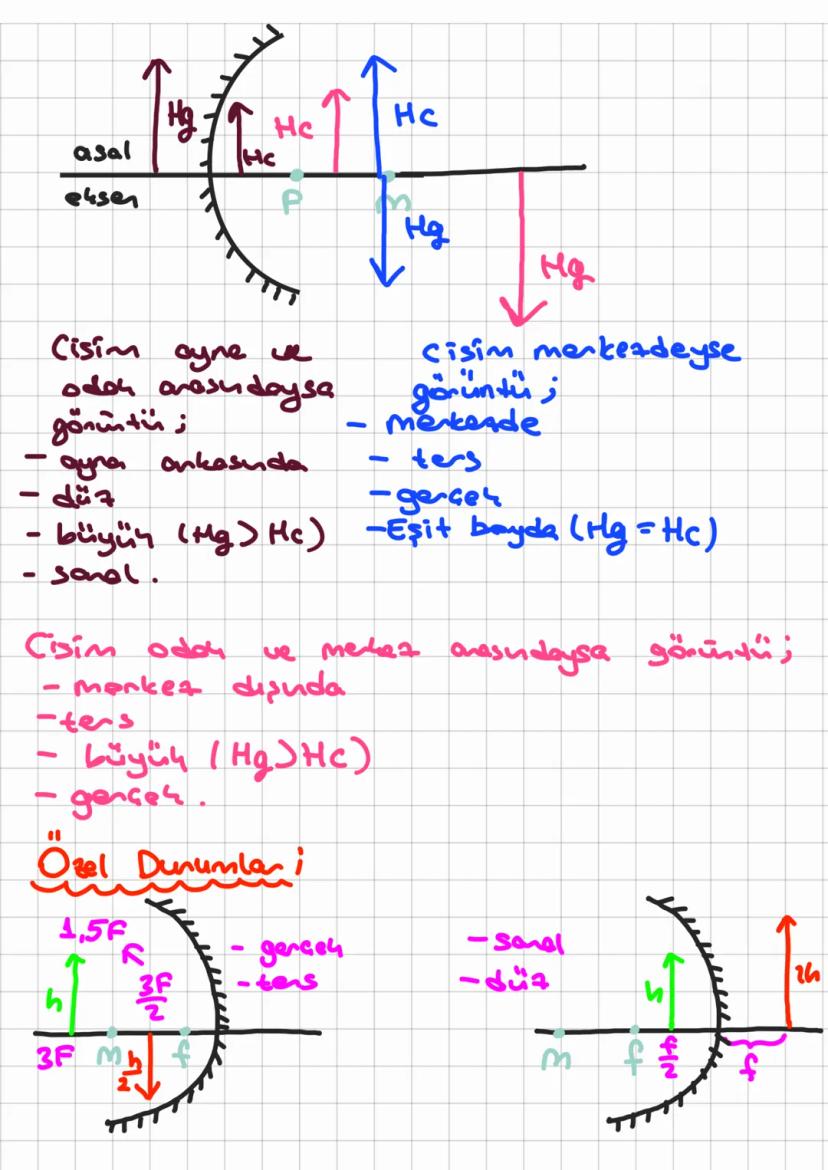 Hg
Hc
Hc
Hc
asal
eksen
P
m
Hg
Hg
Cisim ayna ve
odak arasındaysa
görüntü;
- ayna arkasında
- düz
- büyük (Hg > Hc)
- sanal.
Cisim merkezdeyse
görüntü;
- merkezde
- ters
- gerçek
- Eşit boyda (Hg = Hc)
Cisim odak ve merkez arasındaysa görüntü;
- merkez dışında
- ters
- büyük (Hg > Hc)
- gerçek.
Özel Durumlar;
1,5F
- gerçek
- ters
h
3F/2
3F
m
f
h/2
- sanal
- düz
h
2h
m
f
f/2
f